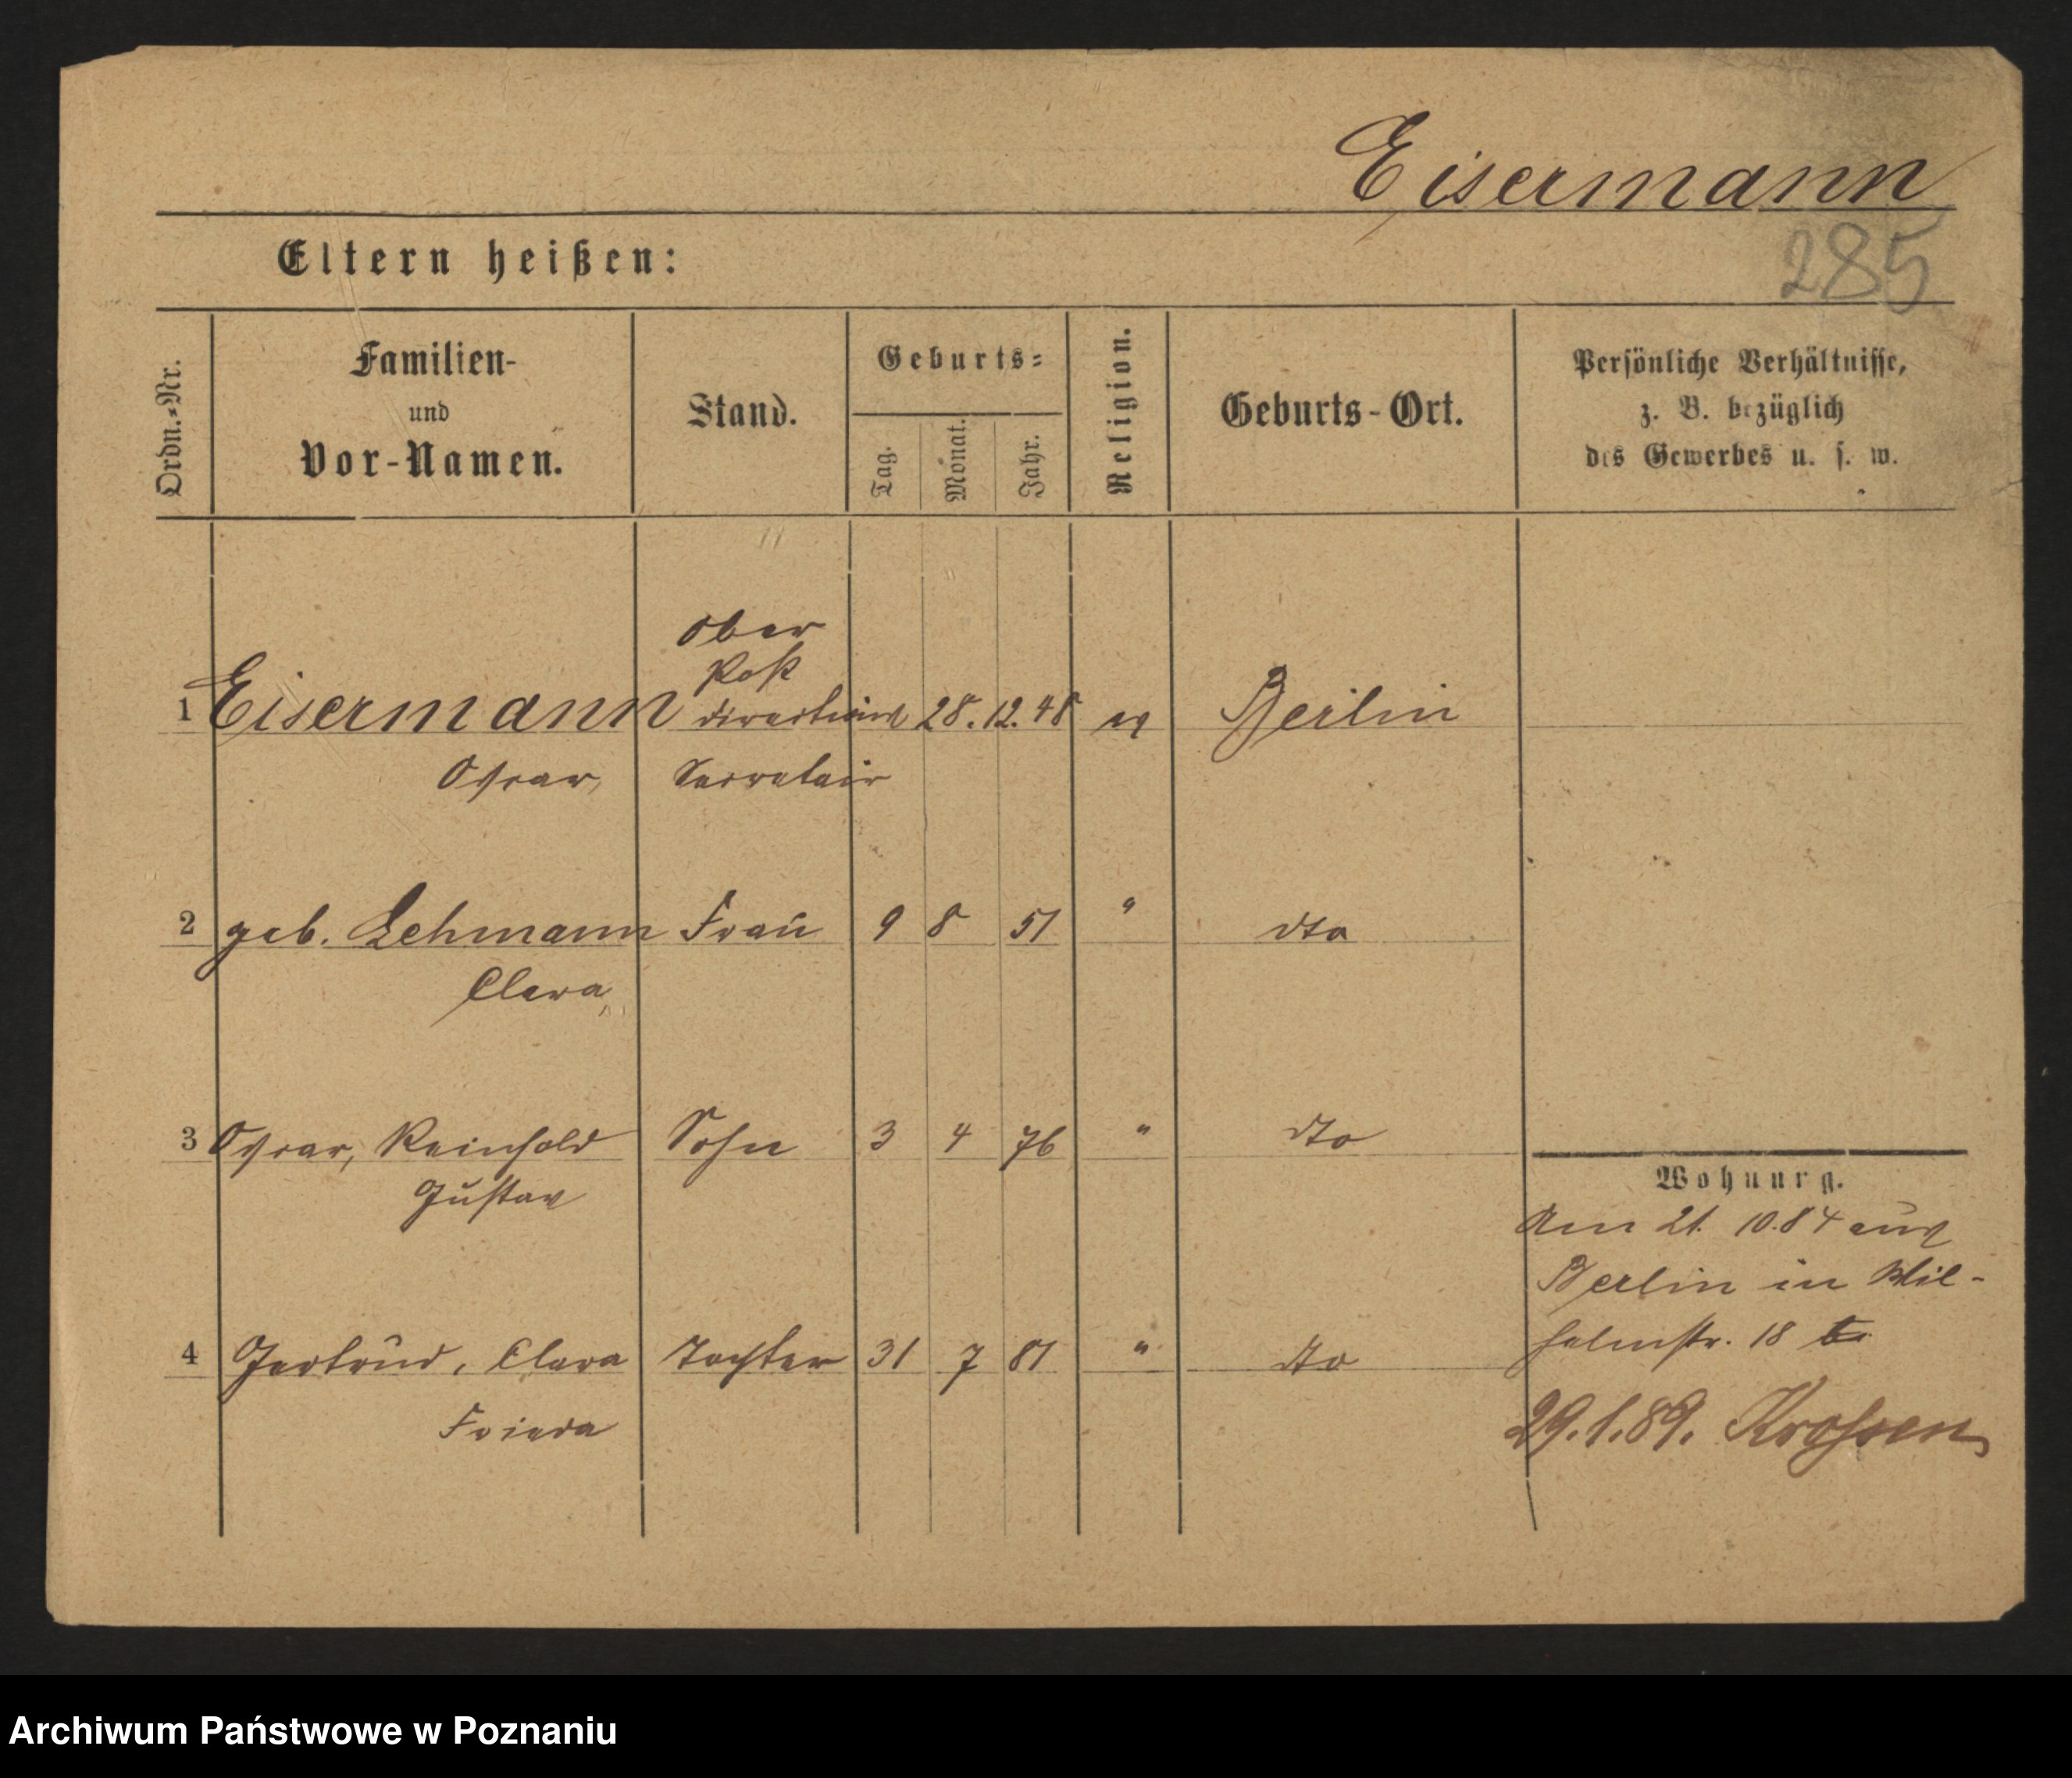 Eisermann
285
Eltern heißen:
Ordn.=Nr.
Familien-
und
Vor-Namen.
Stand.
Geburts=
Tag.
Monat.
Jahr.
Religion.
Geburts-Ort.
Persönliche Verhältnisse,
z. B. bezüglich
des Gewerbes u. s. w.
Ober
Post
1 Eisermann directions 28. 12. 48 ev Berlin
Oscar, Secretair
2 geb. Lehmann Frau 9 8 51 " dto
Clara
3 Oscar, Reinhold Sohn 3 4 76 " dto
Gustav
4 Gertrud, Clara Tochter 31 7 81 " dto
Frieda
Wohnung.
Am 21. 10. 84 aus
Berlin in Wil-
helmstr. 18
29.1.89. Krossen
Archiwum Państwowe w Poznaniu